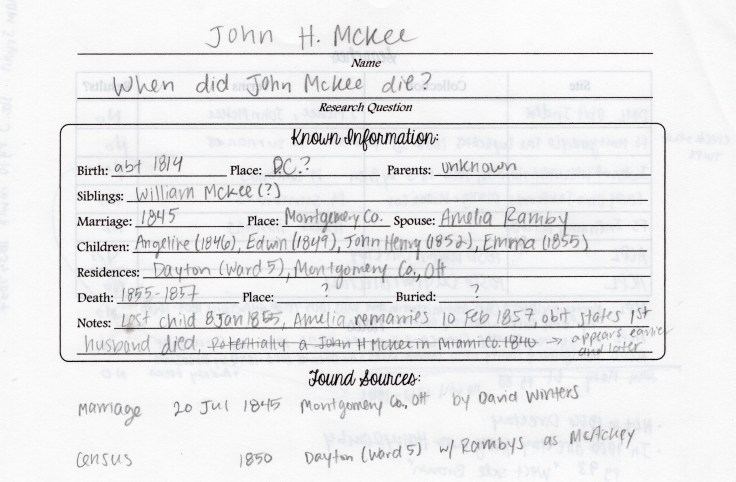 John H. McKee
Name
When did John McKee die?
Research Question
Known Information:
Birth: abt 1814 Place: D.C.? Parents: unknown
Siblings: William McKee (?)
Marriage: 1845 Place: Montgomery Co. Spouse: Amelia Ramby
Children: Angeline (1846), Edwin (1849), John Henry (1852), Emma (1855)
Residences: Dayton (Ward 5), Montgomery Co., OH
Death: 1855-1857 Place: ? Buried:
Notes: Last child 8 Jan 1855, Amelia remarries 10 Feb 1857, obit states 1st
husband died, Potentially a John H McKee in Miami Co. 1840 → appears earlier
and later
Found Sources:
Marriage 20 Jul 1845 Montgomery Co., OH by David Winters
Census 1850 Dayton (Ward 5) w/ Rambys as McAckey